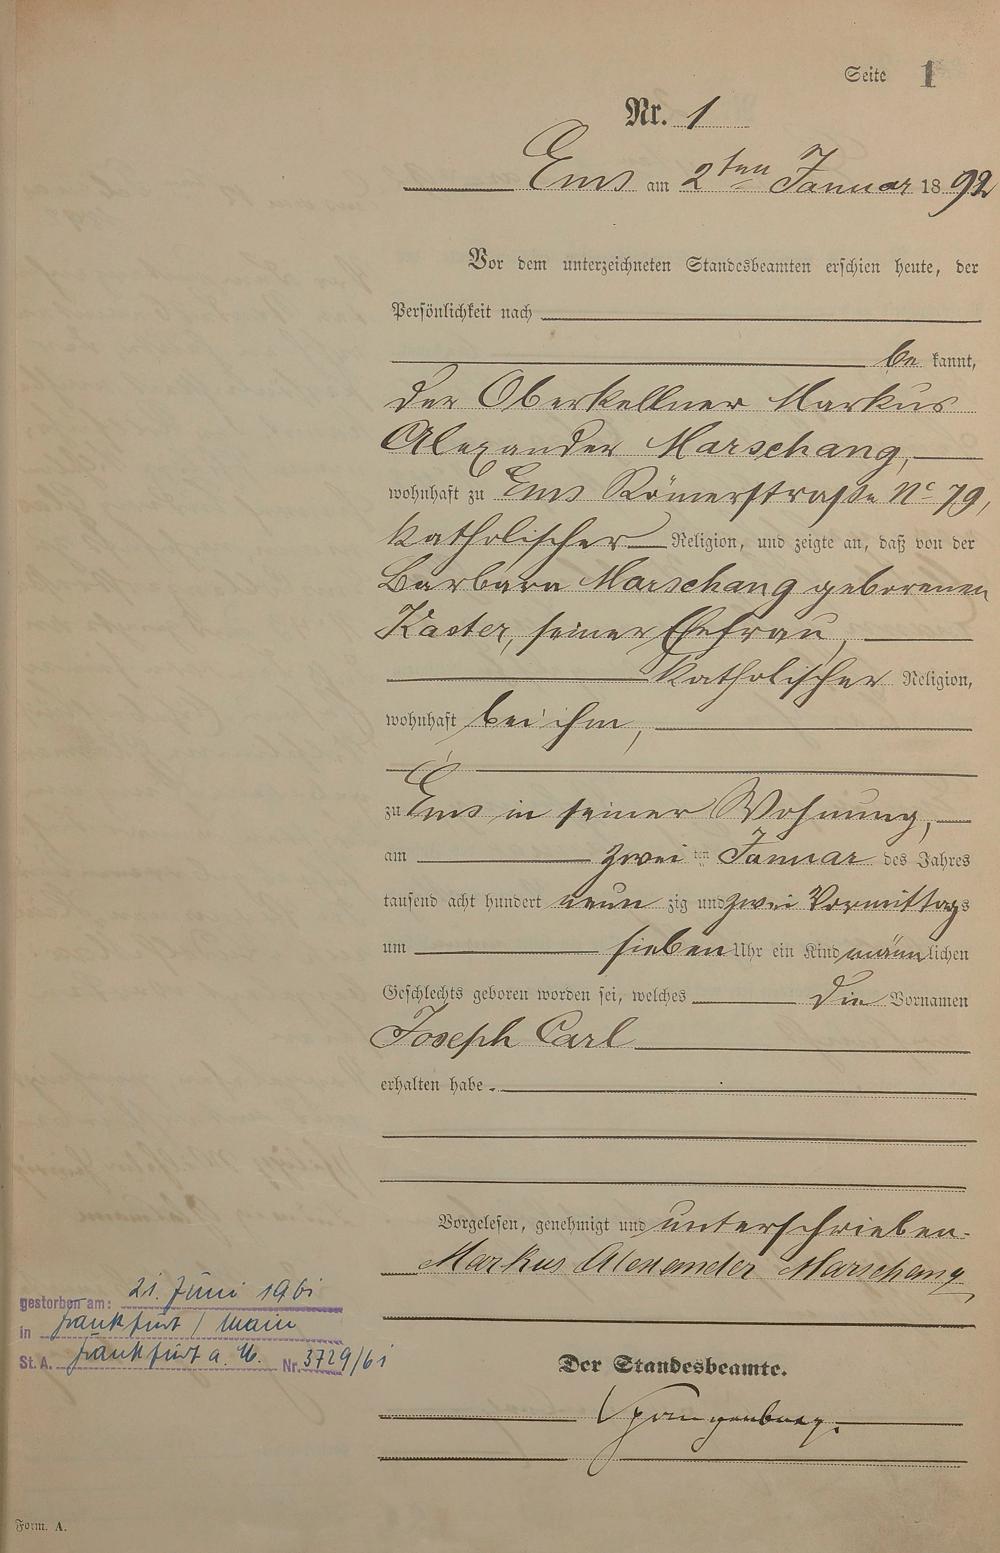 Seite 1
Nr. 1
Ems am 2ten Januar 1892
Vor dem unterzeichneten Standesbeamten erschien heute, der
Persönlichkeit nach
be kannt,
der Oberkellner Markus
Alexander Marschang,
wohnhaft zu Ems Römerstraße No 79,
katholischer Religion, und zeigte an, daß von der
Barbara Marschang geborenen
Kaster, seiner Ehefrau,
katholischer Religion,
wohnhaft bei ihm,
zu Ems in seiner Wohnung,
am zwei ten Januar des Jahres
tausend acht hundert neun zig und zwei Vormittags
um sieben Uhr ein Kind männlichen
Geschlechts geboren worden sei, welches die Vornamen
Joseph Carl
erhalten habe.
Vorgelesen, genehmigt und unterschrieben.
Markus Alexander Marschang
gestorben am: 21. Juni 1961
in Frankfurt / Main
St. A. Frankfurt a. M. Nr. 3729/61
Der Standesbeamte.
Spangenberg.
Form. A.